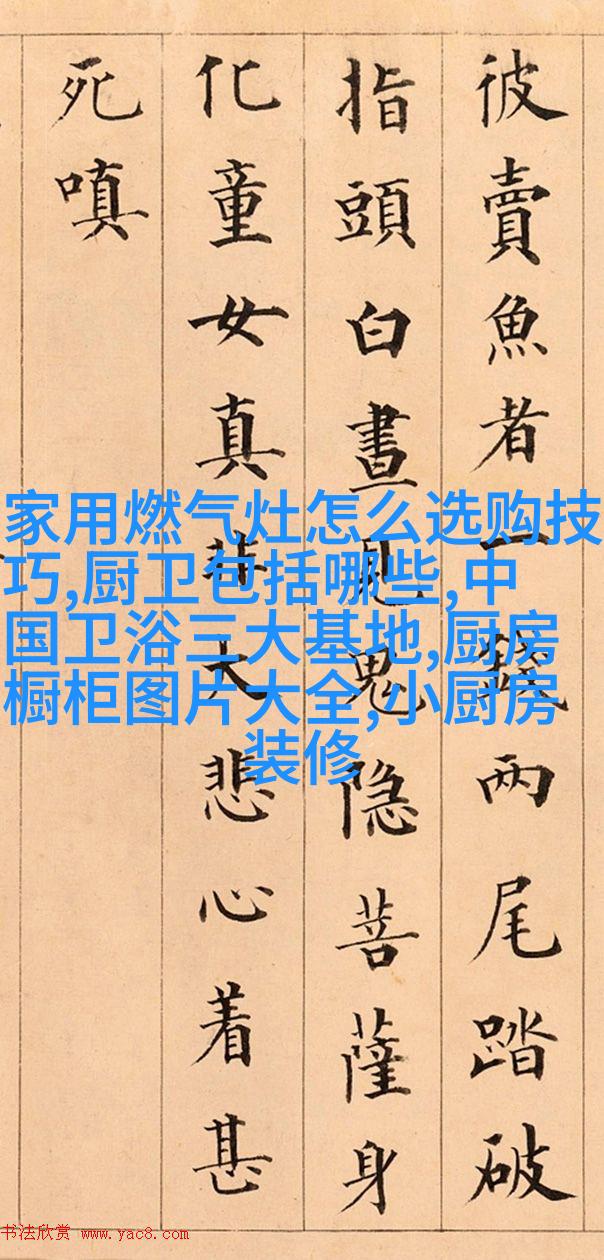 彼賣魚者一錢两尾踏破
指頭白晝見鬼隐菩薩身
化童女真非大悲心着甚
死嗔
家用燃气灶怎么选购技
巧,厨卫包括哪些,中
国卫浴三大基地,厨房
橱柜图片大全,小厨房
装修
书法欣赏 www.yac8.com